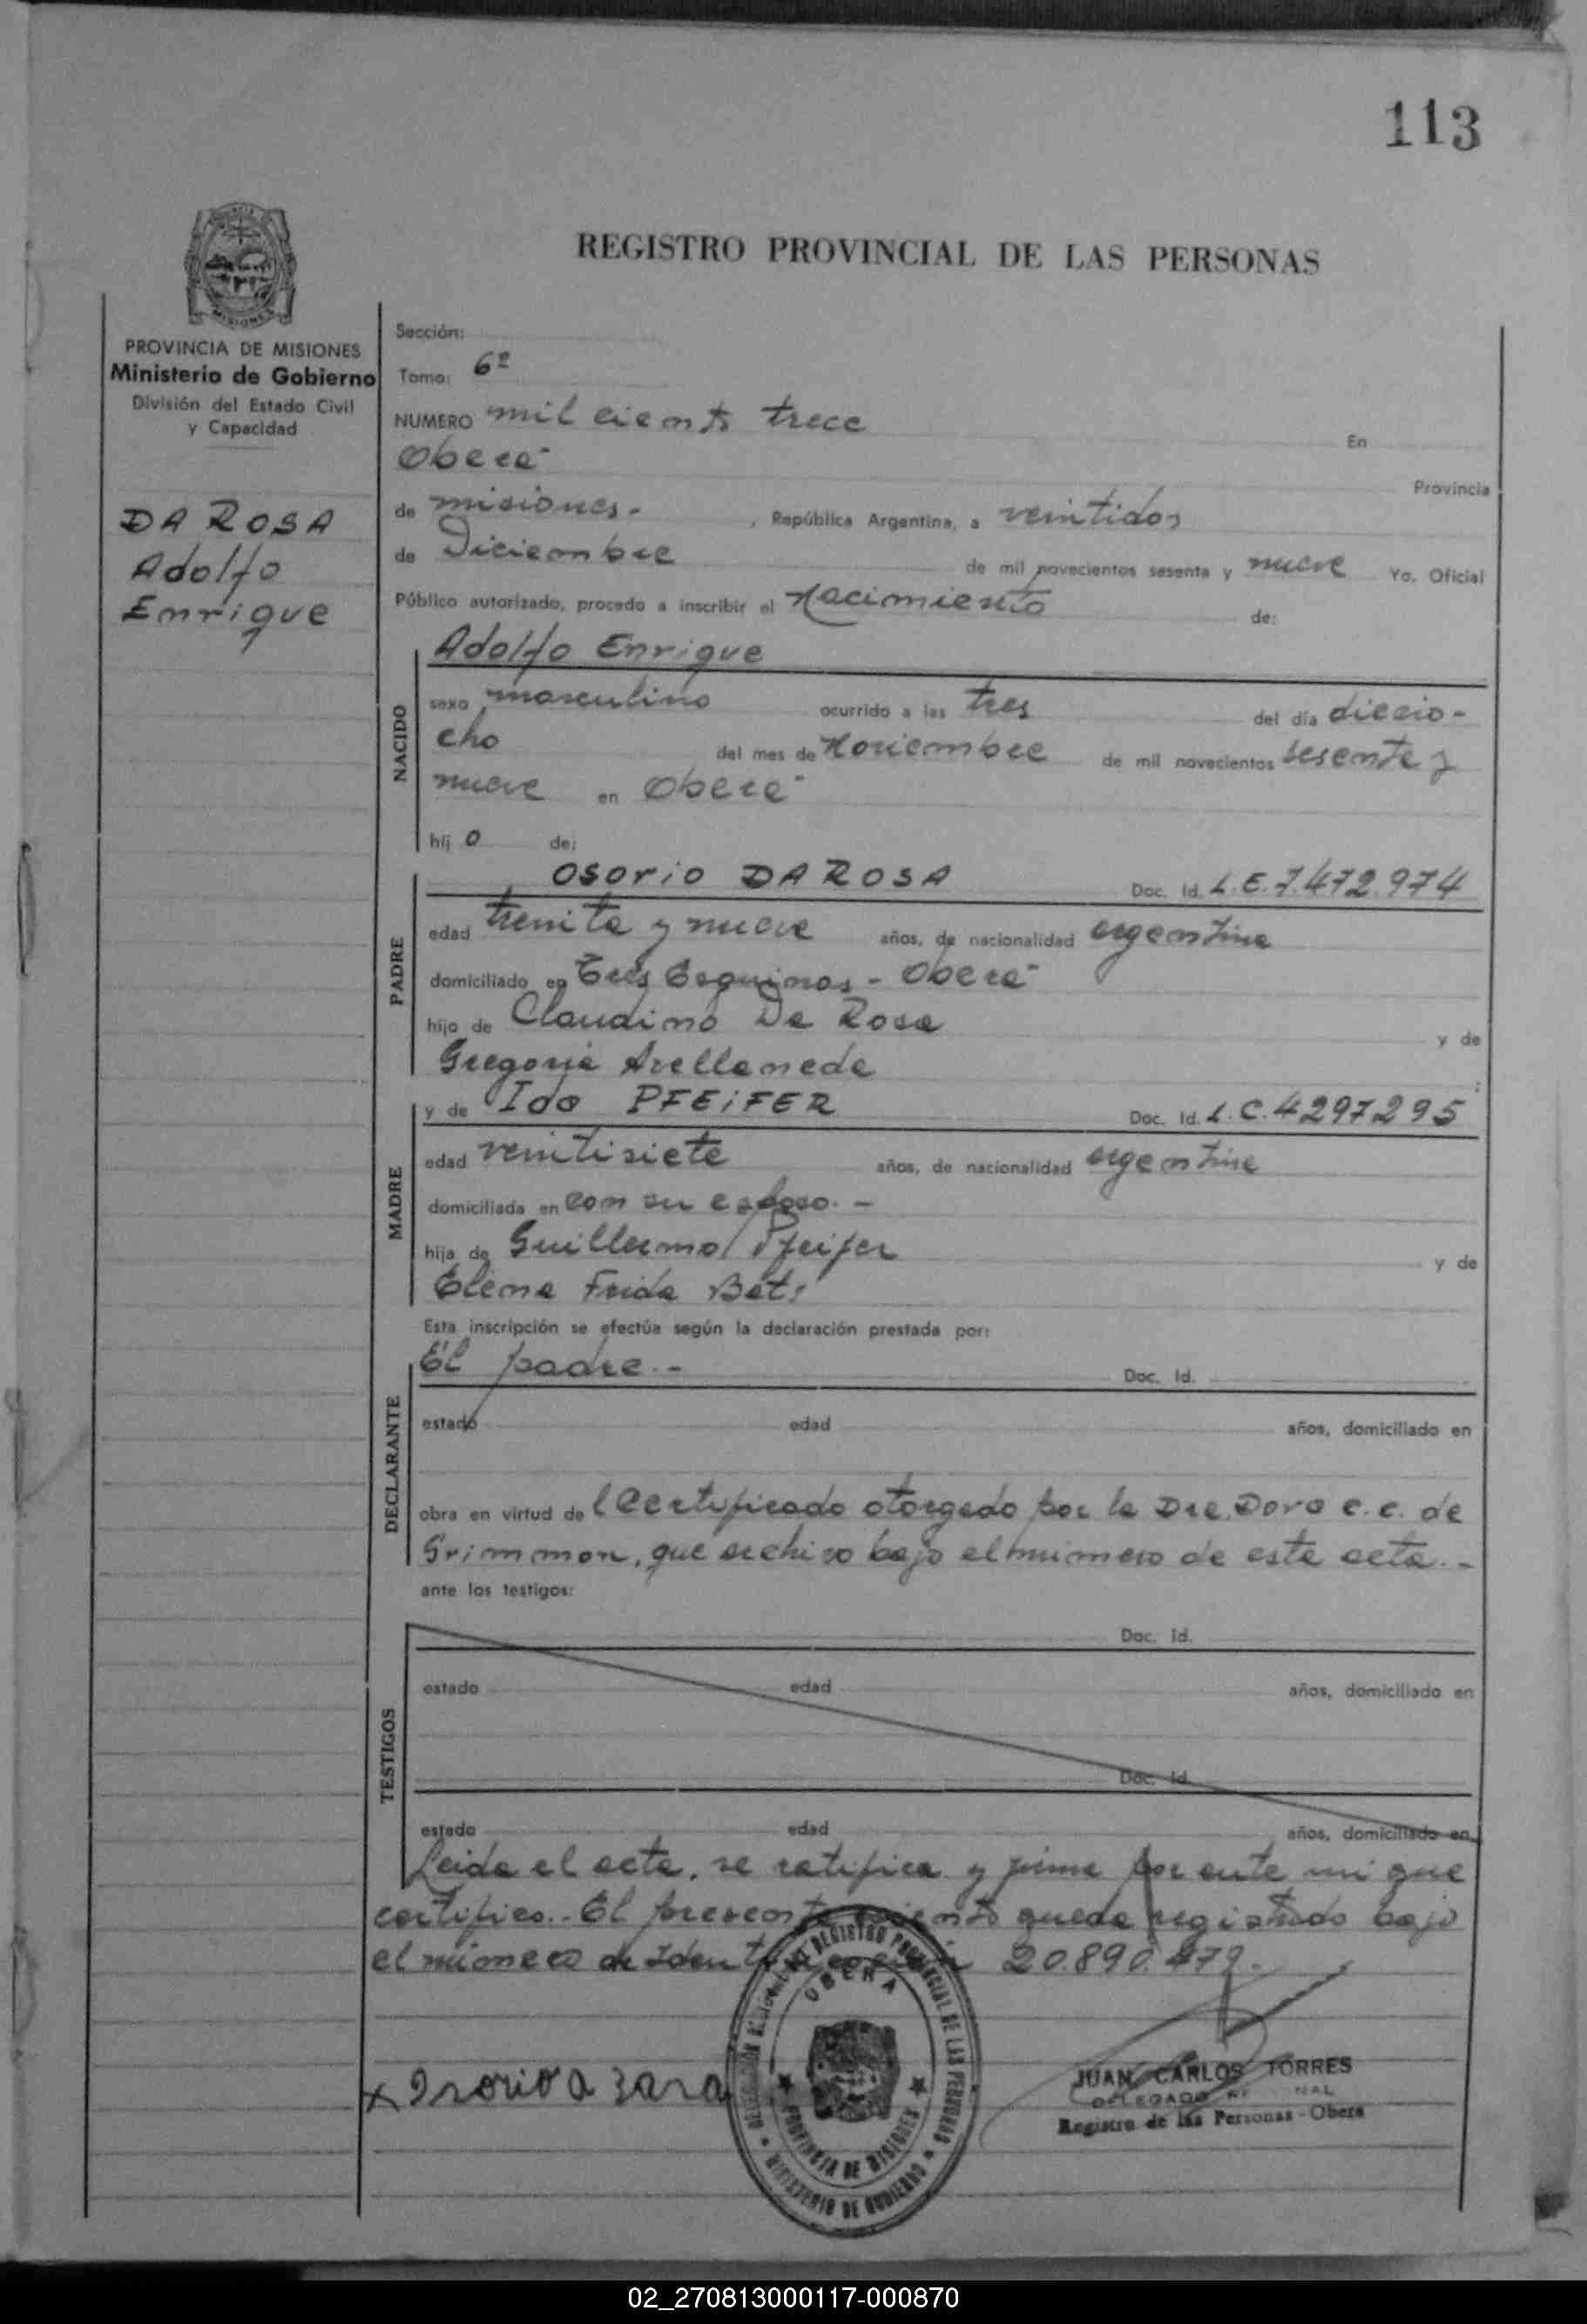 113
REGISTRO PROVINCIAL DE LAS PERSONAS
MISIONES
PROVINCIA DE MISIONES
Ministerio de Gobierno
División del Estado Civil
y Capacidad
DA ROSA
Adolfo
Enrique
Sección:
Tomo: 6º
NUMERO mil ciento trece En
Oberá
Provincia
de misiones.- , República Argentina, a veintidos
de Diciembre de mil novecientos sesenta y nueve Yo, Oficial
Público autorizado, procedo a inscribir el Nacimiento de:
NACIDO
Adolfo Enrique
sexo masculino ocurrido a las tres del día diecio-
cho del mes de Noviembre de mil novecientos sesenta y
nueve en Oberá
hij o de:
PADRE
Osorio DA ROSA Doc. Id. L.E.7.472.974
edad treinta y nueve años, de nacionalidad argentina
domiciliado en Tres Esquinas - Oberá
hijo de Claudino Da Rosa y de
Gregoria Avellaneda
MADRE
y de Ida PFEiFER Doc. Id. L.C.4297295
edad veintisiete años, de nacionalidad argentina
domiciliada en con su esposo.-
hija de Guillermo Pfeifer y de
Elena Frida
Esta inscripción se efectúa según la declaración prestada por:
DECLARANTE
El padre.- Doc. Id.
estado edad años, domiciliado en
obra en virtud de l Certificado otorgado por la Dra. Dora C.C. de
Grimmon, que archivo bajo el número de este acta.-
ante los testigos:
TESTIGOS
Doc. Id.
estado edad años, domiciliado en
Doc. Id.
estado edad años, domiciliado en
Leida el acta, se ratifica y firma por ante mi que
certifico.- El presente asiento queda registrado bajo
el número de Identificación 20.890.
REGISTRO PROVINCIAL DE LAS PERSONAS
OBERA
PROVINCIA DE MISIONES
MINISTERIO DE GOBIERNO
JUAN CARLOS TORRES
DELEGADO
Registro de las Personas - Oberá
02_270813000117-000870